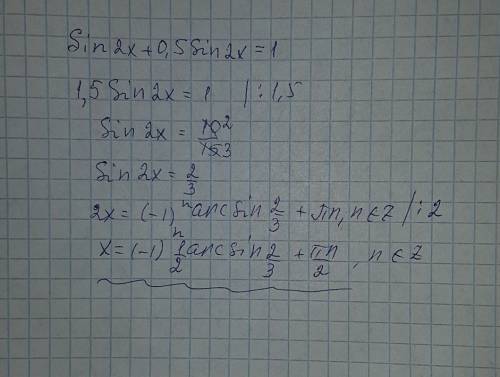 Sin 2x + 0,5 Sin 2x = 1
1,5 Sin 2x = 1 | : 1,5
Sin 2x = 10 2 / 15 3
Sin 2x = 2/3
2x = (-1)^n arcSin 2/3 + πn, n ∈ Z | : 2
x = (-1)^n 1/2 arcSin 2/3 + πn/2, n ∈ Z